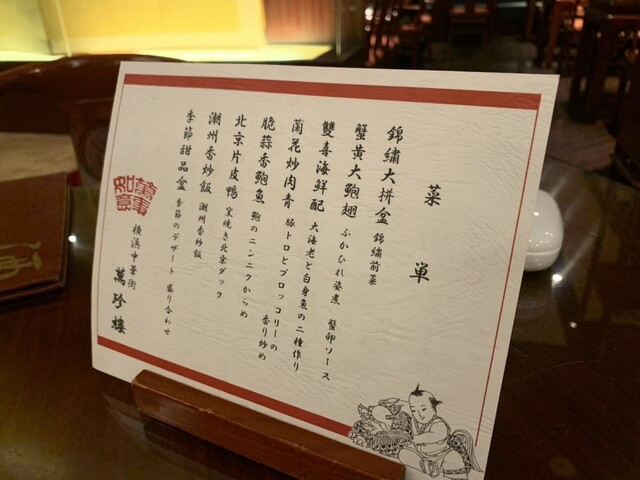 菜単
錦繍大拼盆 錦繍前菜
蟹黄大鮑翅 ふかひれ姿煮 蟹卵ソース
雙喜海鮮配 大海老と白身魚の二種作り
蘭花炒肉青 豚トロとブロッコリーの香り炒め
脆蒜香鮑魚 鮑のニンニクからめ
北京片皮鴨 窯焼き北京ダック
潮州香炒飯 潮州香炒飯
季節甜品盆 季節のデザート 盛り合わせ
萬事如意
横浜中華街
萬珍樓